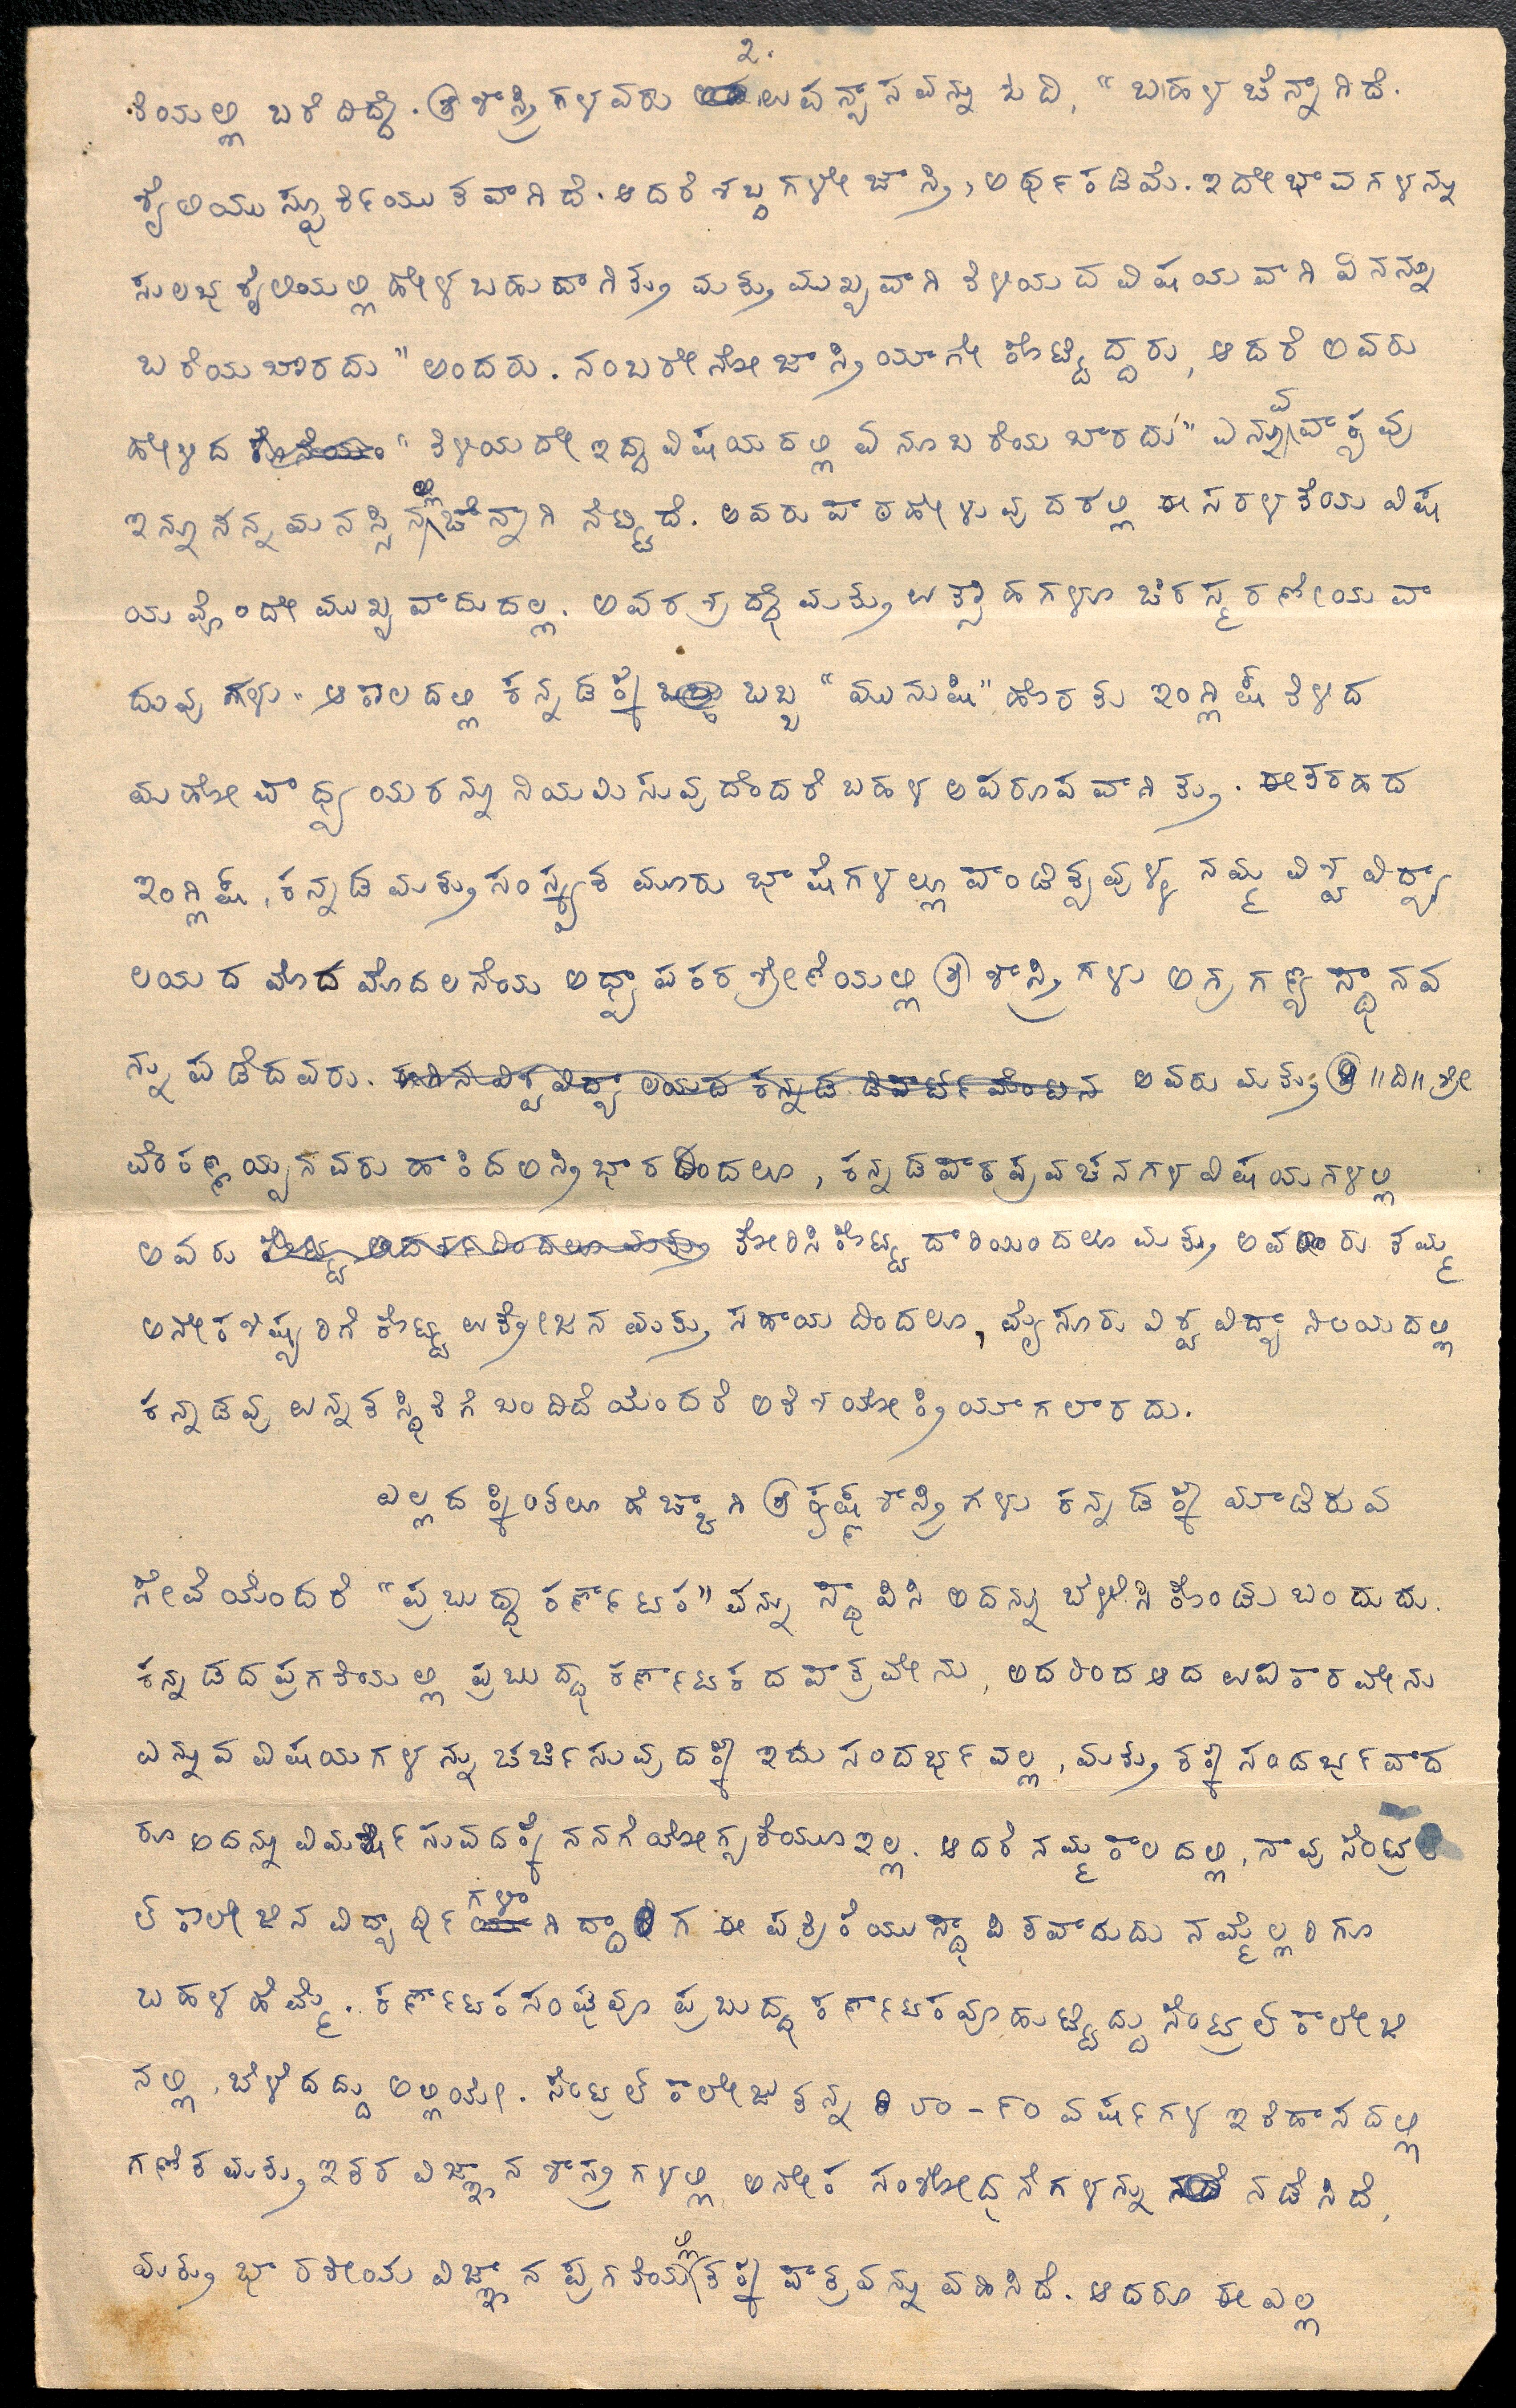 ೨.
ತೆಯಲ್ಲಿ ಬರೆದಿದ್ದೆ. ಶ್ರೀ ಶಾಸ್ತ್ರಿಗಳವರು ಉಪನ್ಯಾಸವನ್ನು ಓದಿ, "ಬಹಳ ಚೆನ್ನಾಗಿದೆ.
ಶೈಲಿಯು ಸ್ಫೂರ್ತಿಯುತವಾಗಿದೆ. ಆದರೆ ಶಬ್ದಗಳೇ ಜಾಸ್ತಿ, ಅರ್ಥ ಕಡಿಮೆ. ಇದೇ ಭಾವಗಳನ್ನು
ಸುಲಭ ಶೈಲಿಯಲ್ಲಿ ಹೇಳಬಹುದಾಗಿತ್ತು ಮತ್ತು ಮುಖ್ಯವಾಗಿ ತಿಳಿಯದ ವಿಷಯವಾಗಿ ಏನನ್ನೂ
ಬರೆಯಬಾರದು" ಅಂದರು. ನಂಬರೇನೋ ಜಾಸ್ತಿಯಾಗೇ ಕೊಟ್ಟಿದ್ದರು, ಆದರೆ ಅವರು
ಹೇಳಿದ "ತಿಳಿಯದೇ ಇದ್ದಾ ವಿಷಯದಲ್ಲಿ ಏನೂ ಬರೆಯಬಾರದು" ಎನ್ನುವ ವಾಕ್ಯವು
ಇನ್ನೂ ನನ್ನ ಮನಸ್ಸಿನಲ್ಲಿ ಚೆನ್ನಾಗಿ ನೆಟ್ಟಿದೆ. ಅವರು ಪಾಠ ಹೇಳುವುದರಲ್ಲಿ ಈ ಸರಳತೆಯ ವಿಷ
ಯವೊಂದೇ ಮುಖ್ಯವಾದುದಲ್ಲ. ಅವರ ಶ್ರದ್ಧೆ ಮತ್ತು ಉತ್ಸಾಹಗಳೂ ಚಿರಸ್ಮರಣೀಯವಾ
ದುವುಗಳು. ಆ ಕಾಲದಲ್ಲಿ ಕನ್ನಡಕ್ಕೆ ಒಬ್ಬ "ಮುನುಷಿ" ಹೊರತು ಇಂಗ್ಲಿಷ್ ತಿಳಿದ
ಮಹೋಪಾಧ್ಯಾಯರನ್ನು ನಿಯಮಿಸುವುದೆಂದರೆ ಬಹಳ ಅಪರೂಪವಾಗಿತ್ತು. ಈ ತರಹದ
ಇಂಗ್ಲಿಷ್, ಕನ್ನಡ ಮತ್ತು ಸಂಸ್ಕೃತ ಮೂರು ಭಾಷೆಗಳಲ್ಲೂ ಪಾಂಡಿತ್ಯವುಳ್ಳ ನಮ್ಮ ವಿಶ್ವವಿದ್ಯಾ
ಲಯದ ಮೊದ ಮೊದಲನೆಯ ಅಧ್ಯಾಪಕರ ಶ್ರೇಣಿಯಲ್ಲಿ ಶ್ರೀ ಶಾಸ್ತ್ರಿಗಳು ಅಗ್ರಗಣ್ಯ ಸ್ಥಾನವ
ನ್ನು ಪಡೆದವರು. ಈಗಿನ ವಿಶ್ವವಿದ್ಯಾಲಯದ ಕನ್ನಡ ಡಿಪಾರ್ಟ್ಮೆಂಟಿನ ಅವರು ಮತ್ತು ॥ದಿ॥ ಶ್ರೀ
ವೆಂಕಣ್ಣಯ್ಯನವರು ಹಾಕಿದ ಅಸ್ತಿಭಾರದಿಂದಲೂ, ಕನ್ನಡ ಪಾಠ ಪ್ರವಚನಗಳ ವಿಷಯಗಳಲ್ಲಿ
ಅವರು ತೋರಿಸಿಕೊಟ್ಟ ದಾರಿಯಿಂದಲೂ ಮತ್ತು ಅವರು ತಮ್ಮ
ಅನೇಕ ಶಿಷ್ಯರಿಗೆ ಕೊಟ್ಟ ಉತ್ತೇಜನ ಮತ್ತು ಸಹಾಯದಿಂದಲೂ, ಮೈಸೂರು ವಿಶ್ವವಿದ್ಯಾನಿಲಯದಲ್ಲಿ
ಕನ್ನಾಡವು ಉನ್ನತ ಸ್ಥಿತಿಗೆ ಬಂದಿದೆಯೆಂದರೆ ಅತಿಶಯೋಕ್ತಿಯಾಗಲಾರದು.
ಎಲ್ಲದಕ್ಕಿಂತಲೂ ಹೆಚ್ಚಾಗಿ ಶ್ರೀ ಕೃಷ್ಣಶಾಸ್ತ್ರಿಗಳು ಕನ್ನಡಕ್ಕೆ ಮಾಡಿರುವ
ಸೇವೆಯೆಂದರೆ "ಪ್ರಬುದ್ಧಾ ಕರ್ಣಾಟಕ" ವನ್ನು ಸ್ಥಾಪಿಸಿ ಅದನ್ನು ಬೆಳೆಸಿಕೊಂಡು ಬಂದುದು.
ಕನ್ನಡದ ಪ್ರಗತಿಯಲ್ಲಿ ಪ್ರಬುದ್ಧಾ ಕರ್ಣಾಟಕದ ಪಾತ್ರವೇನು, ಅದರಿಂದ ಆದ ಉಪಕಾರವೇನು
ಎನ್ನುವ ವಿಷಯಗಳನ್ನು ಚರ್ಚಿಸುವುದಕ್ಕೆ ಇದು ಸಂದರ್ಭವಲ್ಲ, ಮತ್ತು ತಕ್ಕ ಸಂದರ್ಭವಾದ
ರೂ ಅದನ್ನು ವಿಮರ್ಶಿಸುವದಕ್ಕೆ ನನಗೆ ಯೋಗ್ಯತೆಯೂ ಇಲ್ಲ. ಆದರೆ ನಮ್ಮ ಕಾಲದಲ್ಲಿ, ನಾವು ಸೆಂಟ್ರ
ಲ್ ಕಾಲೇಜಿನ ವಿದ್ಯಾರ್ಥಿಗಳಾಗಿದ್ದಾಗ ಈ ಪತ್ರಿಕೆಯು ಸ್ಥಾಪಿತವಾದುದು ನಮ್ಮೆಲ್ಲರಿಗೂ
ಬಹಳ ಹೆಮ್ಮೆ. ಕರ್ಣಾಟಕ ಸಂಘವೂ ಪ್ರಬುದ್ಧ ಕರ್ಣಾಟಕವೂ ಹುಟ್ಟಿದ್ದು ಸೆಂಟ್ರಲ್ ಕಾಲೇಜಿ
ನಲ್ಲಿ, ಬೆಳೆದದ್ದು ಅಲ್ಲಿಯೇ. ಸೆಂಟ್ರಲ್ ಕಾಲೇಜು ತನ್ನ ೮೦-೯೦ ವರ್ಷಗಳ ಇತಿಹಾಸದಲ್ಲಿ
ಗಣಿತ ಮತ್ತು ಇತರ ವಿಜ್ಞಾನ ಶಾಸ್ತ್ರಗಳಲ್ಲಿ ಅನೇಕ ಸಂಶೋಧನೆಗಳನ್ನು ನಡೆಸಿದೆ,
ಮತ್ತು ಭಾರತೀಯ ವಿಜ್ಞಾನ ಪ್ರಗತಿಯಲ್ಲಿ ತಕ್ಕ ಪಾತ್ರವನ್ನು ವಹಿಸಿದೆ. ಆದರೂ ಈ ಎಲ್ಲ